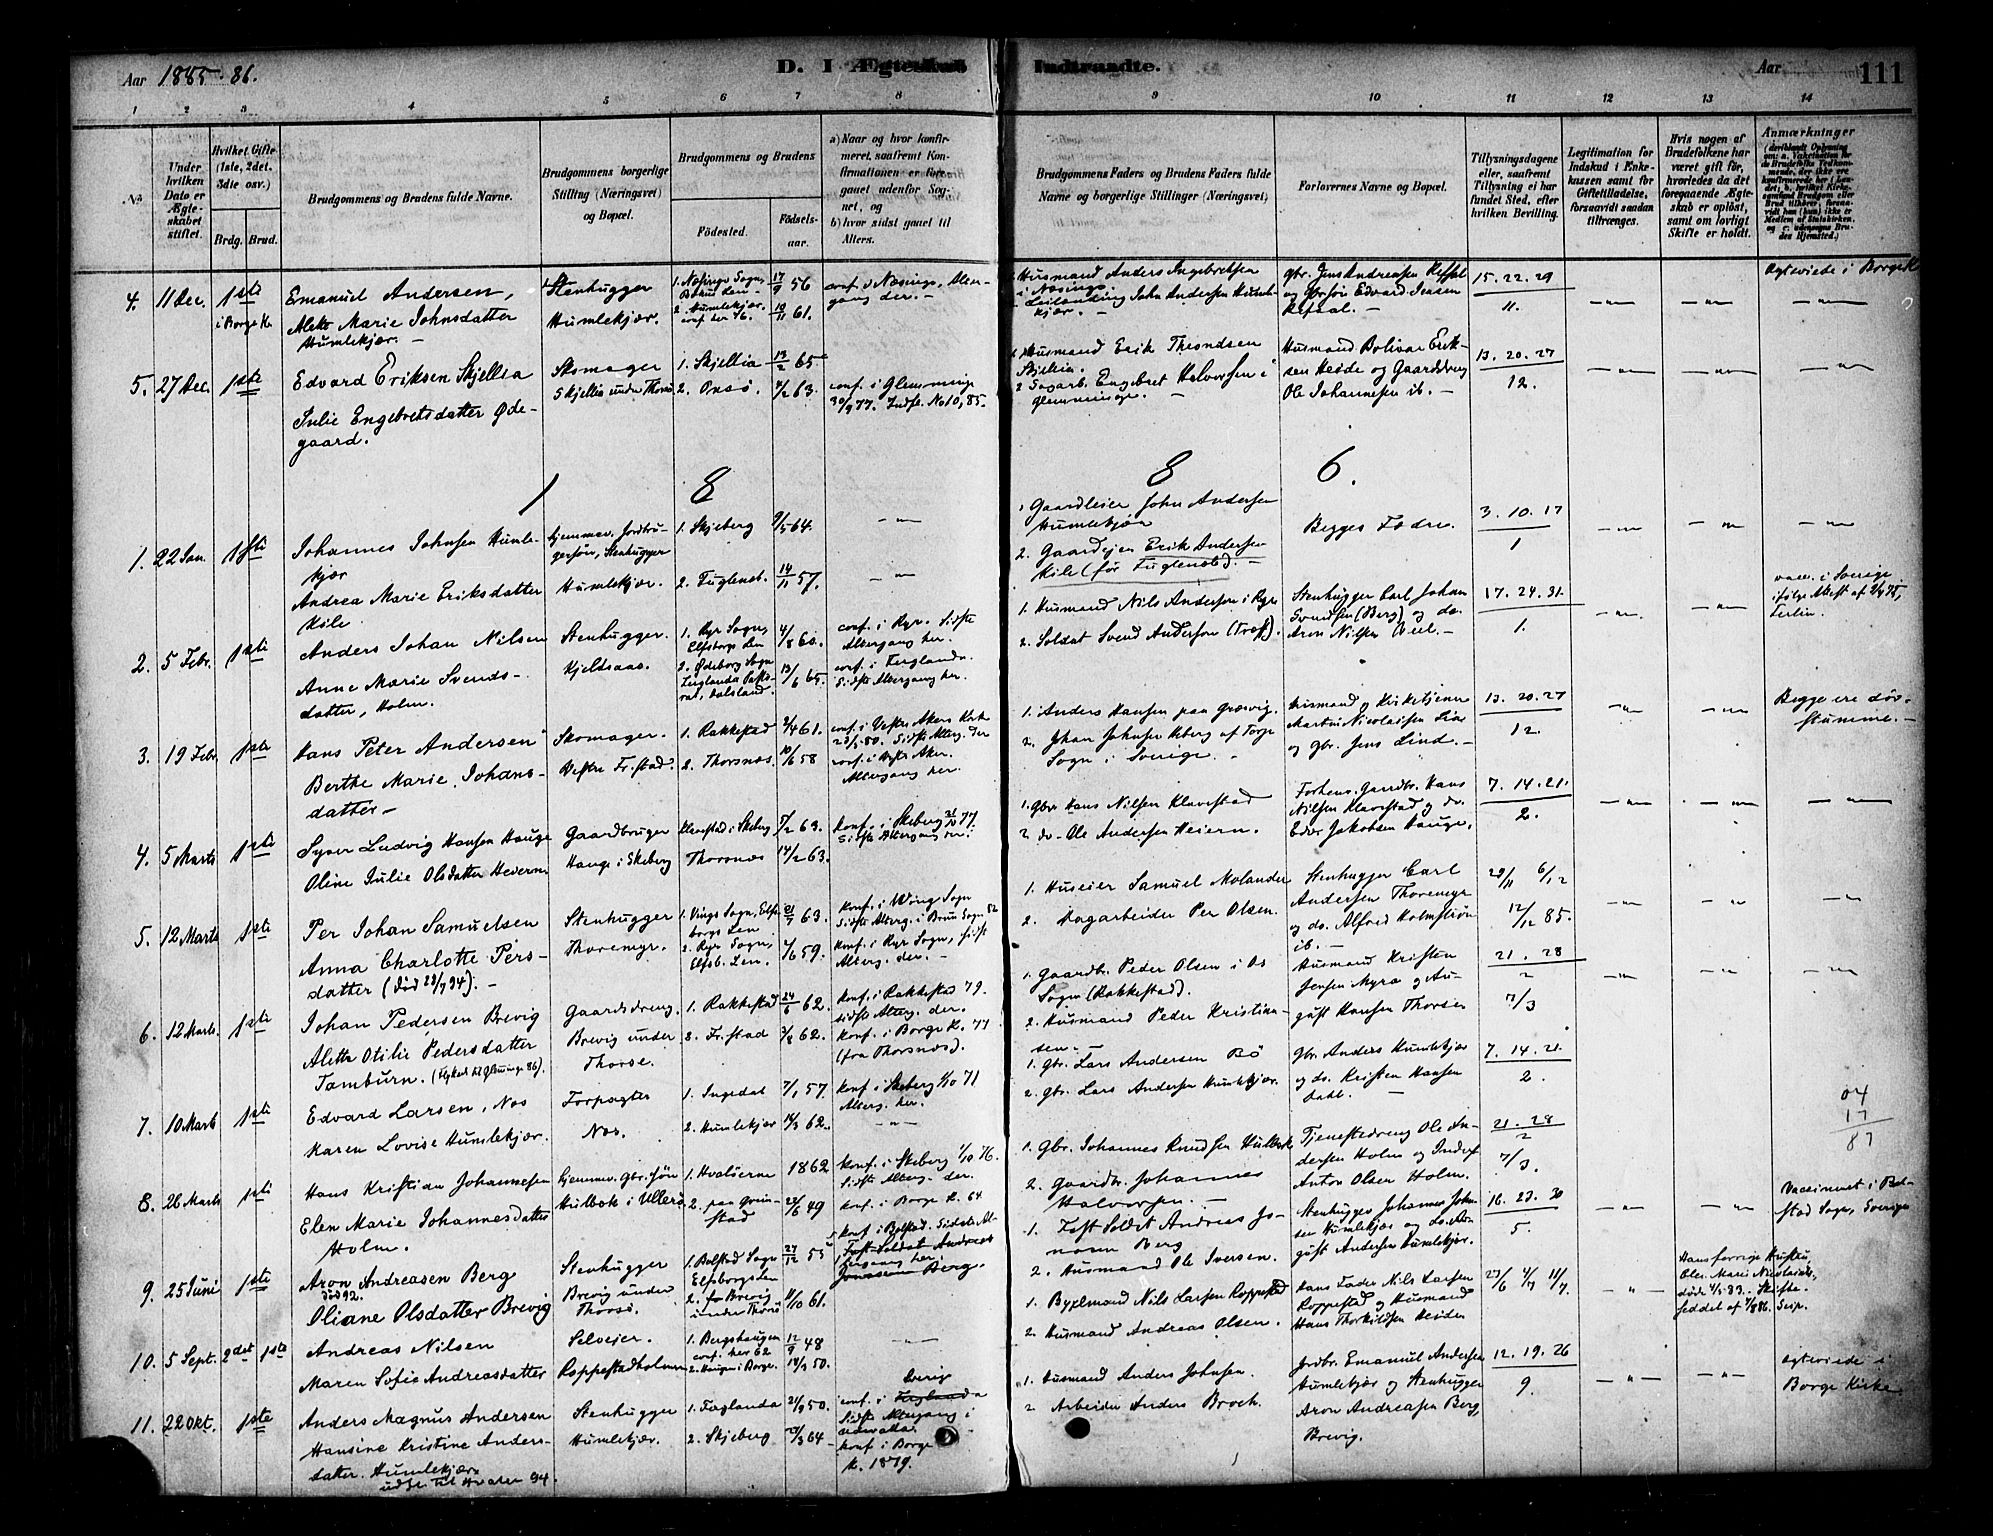 Aar 1885-86.
D. I Ægteskab Indtraadte.
Aar
111
1 2 3 4 5 6 7 8 9 10 11 12 13 14
No.
Under hvilken Dato er Ægteskabet stiftet.
Hvilket Gifte (1ste, 2det, 3die osv.)
Brdg. Brud.
Brudgommens og Brudens fulde Navne.
Brudgommens borgerlige Stilling (Næringsvei) og Bopæl.
Brudgommens og Brudens
Födested.
Födselsaar.
a) Naar og hvor konfirmeret, saafremt Konfirmationen er foregaaet udenfor Sognet, og
b) hvor sidst gaaet til Alters.
Brudgommens Faders og Brudens Faders fulde Navne og borgerlige Stillinger (Næringsvei)
Forlovernes Navne og Bopæl.
Tillysningsdagene eller, saafremt Tillysning ei har fundet Sted, efter hvilken Bevilling.
Legitimation for Indskud i Enkekassen samt for Giftetilladelse, forsaavidt saadan tiltrænges.
Hvis nogen af Brudefolkene har været gift før, hvorledes da det foregaaende Ægteskab er oplöst, samt om lovligt Skifte er holdt.
Anmærkninger
4. 11 Dec. 1ste
i Borge K.
Emanuel Andersen,
Alette Marie Johnsdatter
Humlekjær. —
Stenhugger
Humlekjær.
1. Næsinge Sogn,
2. Humlekjær.
17/9 56
10/11 61.
conf. i Næsinge, Altergang der. —
1. Husmand Anders Ingebretsen
i Næsinge
John Andersen Humlekjær. —
gbr. Jens Andreasen Refsal
og Edvard Jensen
Refsal. —
15. 22. 29
11.
Ægteviede i Borge K
5. 27 Dec. 1ste
Edvard Eriksen Skjellia
Julie Engebretsdatter Ødegaard.
Skomager
Skjellia under Thorsø
1. Skjellia
2. Onsø.
13/2 65
4/2 63.
conf. i Glemminge
30/9 77. Indfl. No 10, 85.
1. Husmand Erik Throndsen
Skjellia.
2 Sagarb. Engebret Halvorsen i
Glemminge. —
Husmand Bolivar Eriksen Heide og Gaarddreng
Ole Johannesen ib. —
13. 20. 27
12.
1 8 8 6.
1. 22 Jan. 1ste
Johannes Johnsen Humlekjær
Andrea Marie Eriksdatter
Kile
hjemmev. Jordbrugersøn, Stenhugger
Humlekjær.
1. Skjeberg
2. Fuglenes.
9/5 64.
14/11 57.
1 Gaardleier John Andersen
Humlekjær
2. Gaardejer Erik Andersen
Kile (før Fugleneb). —
Begges Fædre.
3. 10. 17
1
2. 5 Febr. 1ste
Anders Johan Nilsen
Anne Marie Svendsdatter, Holm.
Stenhugger.
Kjeldsaas.
1. Ryr Sogn,
Elfsborgs Len
2. Ødeborg Sogn
Dalsland.
4/8 60.
13/6 65.
conf. i Ryr. Sidste
Altergang her.
Sidste Altergang her.
1. Husmand Nils Andersen i Ryr
2. Soldat Svend Andersen
Stenhugger Carl Johan
Svendsen (Berg) og do.
Aron Nilsen
17. 24. 31.
1.
vacc. i Sverige
ifølge Attest af
3. 19 Febr. 1ste
Hans Peter Andersen
Berthe Marie Johansdatter —
Skomager.
Vestre Fr.stad.
1. Rakkestad
2. Thorsnæs.
2/4 61.
10/6 58
conf. i Vestre Akers Kirke
23/5 80. Sidste Alterg. der
conf. i Vestre Aker.
Altergang her.
1. Anders Hansen paa Græsvig.
2. Johan Johnsen
Sogn i Sverige. —
Husmand og Kirketjener
Martin Nicolaisen Lia
og gbr. Jens Lind. —
13. 20. 27
12.
Begge ere døvstumme. —
4. 5 Marts 1ste
Syver Ludvig Hansen Hauge
Oline Julie Olsdatter
Gaardbruger
Hauge i Skeberg
Klavestad i Skeberg
Thorsnæs
7/2 63.
14/2 63.
Konf. i Skeberg 77.
Sidste Altergang der.
1. Gbr. Hans Nilsen Klavestad
2 do. Ole Andersen Heiern.
Forhens. Gaardbr. Hans
Nilsen Klavestad og do.
Edv. Jakobsen Hauge.
7. 14. 21.
2.
5. 12 Marts 1ste
Per Johan Samuelsen
Anna Charlotte Persdatter (død 23/7 94). —
Stenhugger
Thoremyr.
2. Ryr Sogn,
Elfsb. Len.
21/7 63.
7/6 59.
Sidste Alterg. i Brun Sogn 82
Konf. i Ryr Sogn, sidst
Alterg. der. —
1. Huseier Samuel Molander
2. Dagarbeider Per Olsen.
Stenhugger Carl
Andersen Thoremyr
og do. Alfred Holmstrøm
ib. —
29/11 6/12
12/12 85.
6. 12 Marts. 1ste
Johan Pedersen Brevig
Aletta Otilie Pedersdatter
Tamburn.
Gaardsdreng.
Brevig under
Thorsø.
1. Rakkestad
2. Fr.stad
24/6 62.
3/8 62.
Konf. i Rakkestad 79.
sidste Alterg. der.
Konf. i Borge K. 77
(fra Thorsnæs).
1. Gaardbr. Peder Olsen i Os
Sogn (Rakkestad).
2. Husmand Peder Kristiansen. —
Husmand Kristen
Jensen Myra og August Hansen Thorsø
21. 28
2
7/3
7. 10 Marts 1ste
Edvard Larsen, Næs
Karen Lovise Humlekjær.
Forpagter
Næs.
1. Ingedal
2. Humlekjær
7/1 57.
14/3 62.
Konf. i Skeberg 1/10 71
Alterg. her.
1. Gbr. Lars Andersen Bö
2. Gbr. Lars Andersen Humlekjær.
Gbr. Anders Humlekjær
og do. Kristen Hansen
Dahl. —
7. 14. 21.
2.
04
17
87
8. 26 Marts 1ste
Hans Kristian Johannesen
Elen Marie Johannesdatter
Holm.
hjemmev. Gbr. søn
Hulbæk i Ullerø
1. Hvaløerne
2. paa Grimstad
1862
22/6 49
Konf. i Skeberg 1/10 76.
Sidste Alterg. der.
Konf. i Borge K. 64
1. Gbr. Johannes Knudsen Hulbæk
2. Gaardbr. Johannes
Halvorsen. —
Tjenestedreng Ole Andersen Holm og Inderst
Anton Olsen Holm.
21. 28
2
7/3.
9. 25 Juni 1ste
Aron Andreasen Berg
død 92.
Oliane Olsdatter Brevig
Stenhugger
Brevig under
Thorsø.
1. Bolstad Sogn
Elfsborgs Len
2. fra Brevig
under Thorsø
24/12 55
11/10 61.
Konf. i Bolstad. Sidste Altergang her.
Fast Soldat Andreas
Jonassen Berg.
1. Fast Soldat Andreas Jonassen Berg
2. Husmand Ole Iversen.
Stenhugger Johannes Johnsen Humlekjær og do. August Andersen Humlekjær.
16. 23. 30
5.
Vaccineret i Bolstad Sogn, Sverige
10. 5 Sept. 2det 1ste
Andreas Nilsen
Maren Sofie Andreasdatter
Selveier.
Roppestadholmen
1. Bergshaugen
conf. her 62
2. Haugen i Borge.
12/9 48
14/2 50.
1. Byxelmand Nils Larsen Roppestad
2. Husmand Andreas Olsen.
Hans Fader Nils Larsen
Roppestad og Husmand
Hans Thorkildsen Heiden
27/6 4/7 11/7
Hans forrige Hustru,
Marie Nicolaisd.,
døde 4/5 83. Skiftet af 7/8 86.
11. 22 Okt. 1ste
Anders Magnus Andersen
Hansine Kristine Andersdatter. Humlekjær
udfl. til Hvaler 94.
Stenhugger
Humlekjær.
1. Færglanda
2. Skjeberg
21/9 50.
27/3 64
Sverig
conf. i
Sidste Altergang i
Konf. i Borge
K. 1879.
1. Husmand Anders Johnsen.
2 Arbeider Anders Broch.
Jordbr. Emanuel Andersen
Humlekjær og Stenhugger
Aron Andreasen Berg,
Brevig.
12. 19. 26
9.
Ægteviede i
Borge Kirke